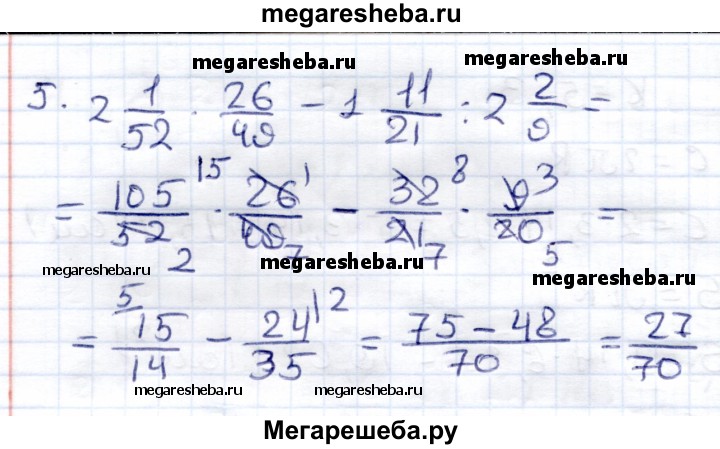 megaresheba.ru
megaresheba.ru megaresheba.ru
5. 2 1/52 · 26/49 − 1 11/21 : 2 2/9 =
= 105/52 15 2 · 26/49 1 7 − 32/21 8 7 · 9/20 3 5 =
megaresheba.ru megaresheba.ru megaresheba.ru
= 15/14 5 − 24/35 2 = 75 − 48/70 = 27/70
megaresheba.ru megaresheba.ru
Мегарешеба.ру